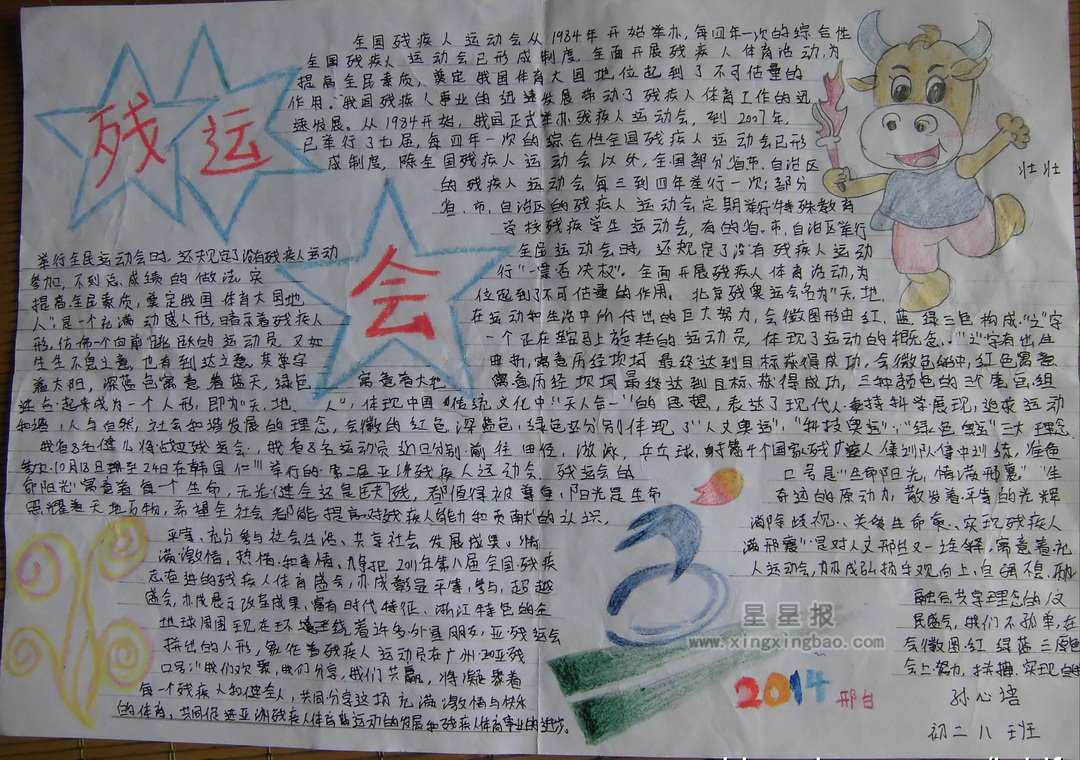 残 运
会
全国残疾人运动会从1984年开始举办,每四年一次的综合性
全国残疾人运动会已形成制度。全面开展残疾人体育活动,为
提高全民素质,奠定我国体育大国地位起到了不可估量的
作用。我国残疾人事业的迅速发展带动了残疾人体育工作的迅
速发展。从1984开始,我国正式举办残疾人运动会,到2007年,
已举行了七届,每四年一次的综合性全国残疾人运动会已形
成制度,除全国残疾人运动会以外,全国部分省市、自治区
的残疾人运动会每三到四年举行一次;部分
省、市、自治区的残疾人运动会定期举行特殊教育
学校残疾学生运动会,有的省、市、自治区举行
壮壮
举行全民运动会时,还规定了没有残疾人运动 全民运动会时,还规定了没有残疾人运动
参加,不列总成绩的做法,实 行"一票否决权"。全面开展残疾人体育活动,为
提高全民素质,奠定我国体育大国地, 位起到了不可估量的作用。北京残奥运会名为"天、地、
人"是一个充满动感人形,暗示着残疾人 在运动和生活中所付出的巨大努力,会徽图形由红、蓝、绿三色构成."之"字
形,仿佛一个向前跳跃的运动员,又如 一个正在鞍马上旋转的运动员,体现了运动的概念。"之"字有出,生
生生不息之意,也有到达之意,其字 曲折,寓意历经坎坷最终达到目标获得成功,会徽色的中,红色寓意
着太阳,深蓝色寓意着蓝天,绿色 寓意着大地 寓意历经坎坷最终达到目标,获得成功,三种颜色的
起来成为一个人形,即为"天、地、人",体现中国传统文化中"天人合一"的思想,表达了现代人 科学展现,追求运动
和谐,人与自然,社会和谐发展的理念,会徽的红色,深蓝色,绿色又分别体现了"人文奥运","科技奥运","绿色奥运"三大理念.
我省8名健儿将战亚残运会,我省8名运动员近日分别前往田径,游泳,乒乓球,射箭4个国家残疾人集训队集中训练,准备
参加10月18日 至24日在韩国仁川举行的第二届亚洲残疾人运动会. 残运会的 口号是"生命阳光,情满 "."生
命阳光"寓意着每一个生命,无论健全还是 残,都值得被尊重,阳光是生命 奇迹的原动力,散发着平等的光辉
照耀着天地万物,希望全社会都能提高对残疾人能力和贡献的认识, 消除歧视,关爱生命,实现残疾人
平等、充分参与社会生活、共享社会发展成果。"情
满激情,热情,和 情,力争把2011年第八届全国残疾
人运动会,办成弘扬乐观向上,自强不息,
融合,共享理念的
民盛会,我们不孤单,在
会徽图红 绿 蓝 三原色
会上努力,拼搏,实现
盛会,办成展示改革成果,富有时代特征、浙江特色的全
地球周围现在环绕着许多外星朋友,亚残运会
拼出的人形,象征着残疾人运动员在广州2010亚残
口号:"我们欢聚,我们分享,我们共赢,将凝聚着
每一个残疾人和健全人,共同分享这项充满激情与快乐
的体育,共同促进亚洲残疾人体育运动的发展和残疾人体育事业的进步。
2014
孙心语
初二八班
星星报
www.xingxingbao.com